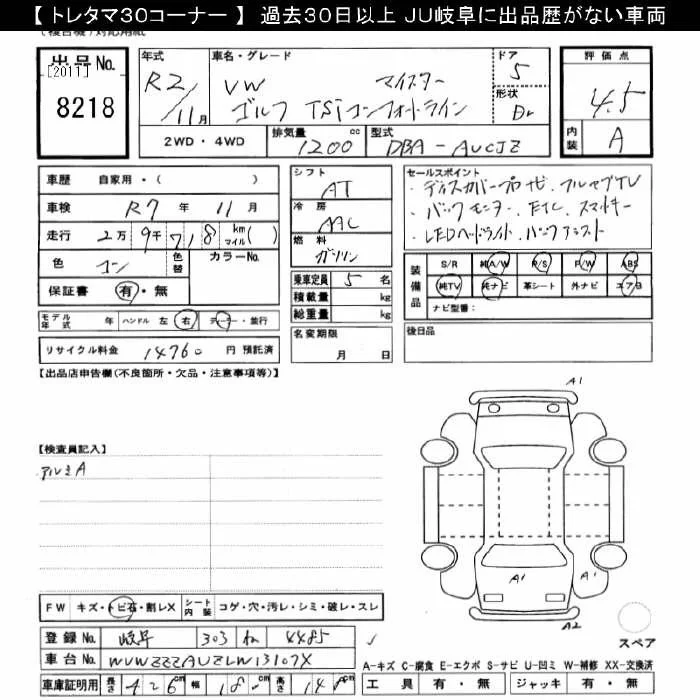 【トレタマ30コーナー】 過去30日以上 JU岐阜に出品歴がない車両
出品No.
[2011]
8218
年式 R2/11月
車名・グレード VW マイスター
ゴルフ TSiコンフォートライン
ドア 5
形状
評価点 4.5
内装 A
2WD・4WD
排気量 1200 cc
型式 DBA-AUCJZ
車歴 自家用・( )
車検 R7年11月
走行 2万9千718 km マイル( )
色 コン 色替 カラーNo.
保証書 有・無
モデル年式 年 ハンドル 左 右 ディーラー・並行
リサイクル料金 14760 円 預託済
シフト AT
冷房 AAC
燃料 ガソリン
乗車定員 5 名
積載量 kg
総重量 kg
名変期限 月 日
セールスポイント
・ディスカバープロナビ、フルセグTV
・バックモニター、ETC、スマートキー
・LEDヘッドライト、バックアシスト
装備品 S/R 純A/W R/S P/W ABS
純TV 純ナビ 革シート 外ナビ エアB
ナビ型番:
後日品
【出品店申告欄(不良箇所・欠品・注意事項等)】
【検査員記入】
アルミA
A1
A1
A1
A2
スペア
FW キズ・トビ石・割レX シート内装 コゲ・穴・汚レ・シミ・破レ・スレ
登録No. 岐阜 303 ね 4485
車台No. WVWZZZAUZLW13107X
A-キズ C-腐食 E-エクボ S-サビ U-凹ミ W-補修 XX-交換済
車庫証明用 長さ 426cm 幅 18 cm 高さ 14 cm
工具 有・無 ジャッキ 有・無